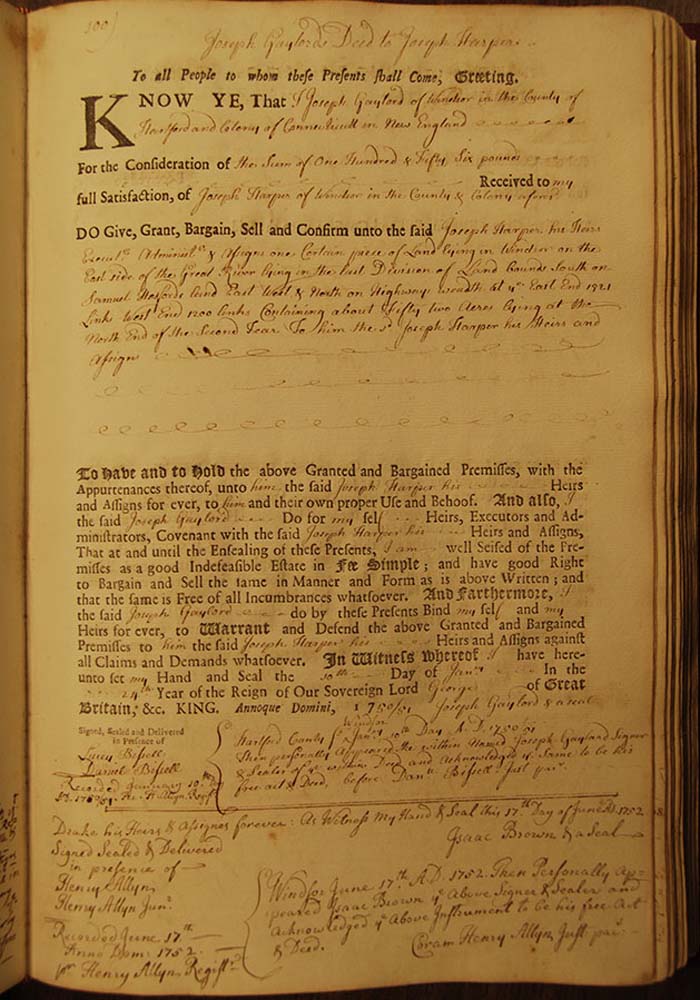 100)
Joseph Gaylords Deed to Joseph Harper
To all People to whom theſe Preſents ſhall Come, Greeting.
KNOW YE, That I Joseph Gaylord of Windsor in the County of
Hartford and Colony of Connecticutt in New England
For the Conſideration of the Sum of One Hundred & Fifty Six pounds
Received to my
full Satisfaction, of Joseph Harper of Windsor in the County & Colony afores
DO Give, Grant, Bargain, Sell and Confirm unto the ſaid Joseph Harper his Heirs
Execut.rs Administ.rs & Assigns one Certain piece of Land lying in Windsor on the
East side of the Great River lying in the last Division of Land bounds South on
Samuel land East West & North on Highways weadth at ye East End 1321
Links West End 1200 links Containing about Fifty two Acres lying at the
North End of the Second Tear To him the sd. Joseph Harper his Heirs and
Assigns
To Have and to Hold the above Granted and Bargained Premiſſes, with the
Appurtenances thereof, unto him the ſaid Joseph Harper his Heirs
and Aſſigns for ever, to him and their own proper Uſe and Behoof. And alſo, I
the ſaid Joseph Gaylord Do for my ſelf Heirs, Executors and Ad-
miniſtrators, Covenant with the ſaid Joseph Harper his Heirs and Aſſigns,
That at and until the Enſealing of theſe Preſents, I am well Seiſed of the Pre-
miſſes as a good Indefeaſible Eſtate in Fee Simple; and have good Right
to Bargain and Sell the ſame in Manner and Form as is above Written; and
that the ſame is Free of all Incumbrances whatſoever. And Farthermore, I
the ſaid Joseph Gaylord do by theſe Preſents Bind my ſelf and my
Heirs for ever, to Warrant and Defend the above Granted and Bargained
Premiſſes to him the ſaid Joseph Harper his Heirs and Aſſigns againſt
all Claims and Demands whatſoever. In Witneſs whereof I have here-
unto ſet my Hand and Seal the 10th Day of Janry In the
24th Year of the Reign of Our Sovereign Lord George of Great
Britain, &c. KING. Annoque Domini, 1750/51 Joseph Gaylord & a seal
Signed, Sealed and Delivered
in Preſence of
Lucey Bissell
Daniel Bissell
Recorded January 10th
Windsor
Hartford County Janry 10th Day A.D. 1750/51
Then personally Appeared the within Named Joseph Gaylord Signer
& Sealer of ye within Deed and Acknowledged ye Same to be his
free act & Deed, before Danll Bissell Just pac.
Drake his Heirs & Assignes forever: As Witness My Hand & Seal this 17th Day of June AD 1752
Isaac Brown & a Seal
Signed Sealed & Delivered
in presence of
Henry Allyn
Henry Allyn Junr
Recorded June 17th
Anno Dom: 1752
pr Henry Allyn Registr
Windsor June 17th A.D. 1752. Then Personally Ap-
peared Isaac Brown ye Above Signer & Sealer and
Acknowledged ye Above Instrument to be his free Act
& Deed. Coram Henry Allyn, Just pac.